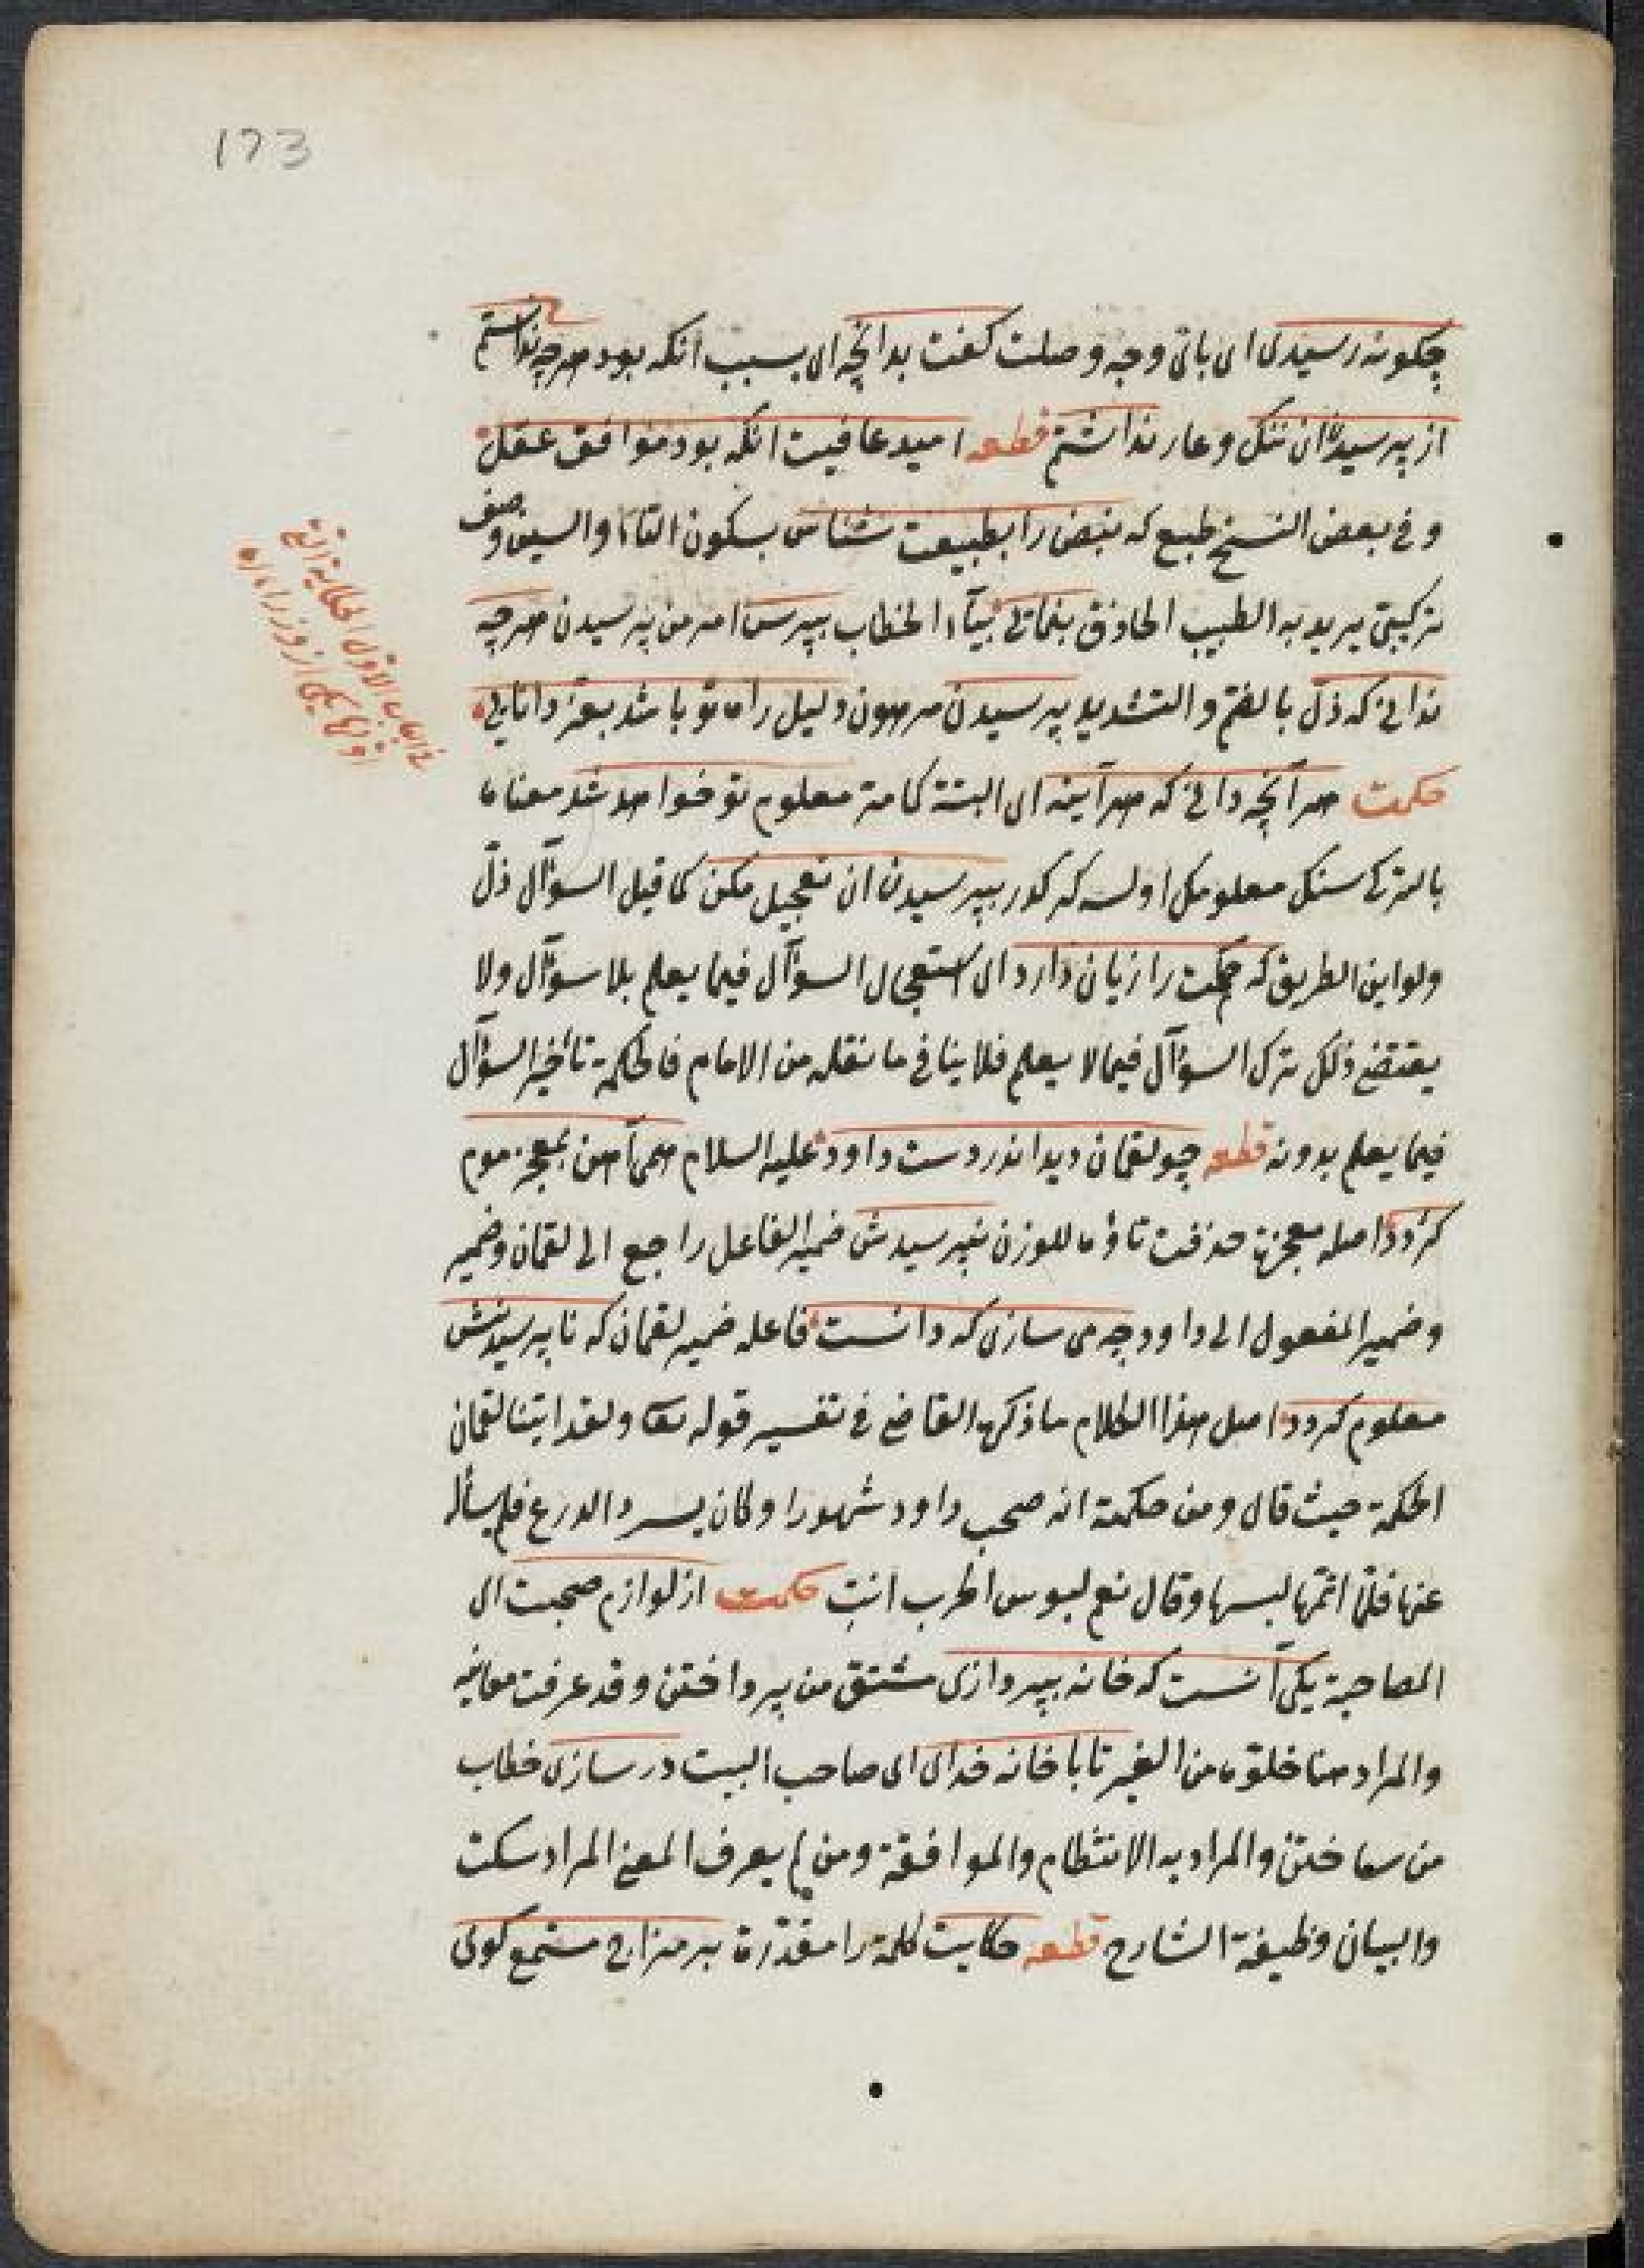 173
چکونه رسیدی ای بای وجه وصلت کفت بدانچه ای بسبب انکه بود هرچه ندانستم
از پرسیدن ان ننک وعار نداشتم قطعه امید عافیت انکه بود موافق عقل
وفی بعض النسخ طبع که نبض را بطبیعت شناس بسکون التاء والسین وصف
ترکیبی یرید به الطبیب الحاذق بنمائی بیآء الخطاب بپرس امر من پرسیدن هرچه
ندانی که ذل بالضم والتشدید پرسیدن مرهون دلیل راه تو باشد بعز دانایی
حکمت هر آنچه دانی که هرآینه ای البتة کامة معلوم تو خواهد شد معناه
بالترکی سنک معلومک اولسه کرکدر بپرسیدن ان تعجیل مکن کما قیل السوآل ذل
ولو این الطریق که حکمت را زیان دارد ای استعجال السوآل فیما یعلم بلا سوآل ولا
یقتضی ذلک ترک السوآل فیما لا یعلم فلا ینافی ما نقله من الامام فالحکمة تأخیر السوآل
فیما یعلم بدونه قطعه چو لقمان دید اندر دست داود علیه السلام همی آهن بمعجز موم
کردد اصله معجزه حذفت تاؤه للوزن نپرسیدش ضمیر الفاعل راجع الی لقمان وضمیر
وضمیر المفعول الی داود چه می سازی که دانست فاعله ضمیر لقمان که نا پرسیدنش
معلوم کردد اصل هذا الکلام ما ذکره القاضی فی تفسیر قوله تعالی ولقد اتینا لقمان
الحکمة حیث قال ومن حکمته انه صحب داود شهورا وکان یسرد الدرع فلم یسأله
عنها فلما اتمها لبسها وقال نعم لبوس الحرب انت حکمت از لوازم صحبت ای
المصاحبة یکی آنست که خانه بپردازی مشتق من پرداختن وقد عرفت معانیه
والمراد هنا خلوه من الغیر تا با خانه خدای ای صاحب البیت در سازی خطاب
من ساختن والمراد به الانتظام والموافقة ومن لم یعرف المعنی المراد سکت
والبیان وظیفة الشارح قطعه حکایت کلمة را مقدرة بر مزاج مستمع کوی
فی الباب الاول الحکایة
اولها یکی از وزرا